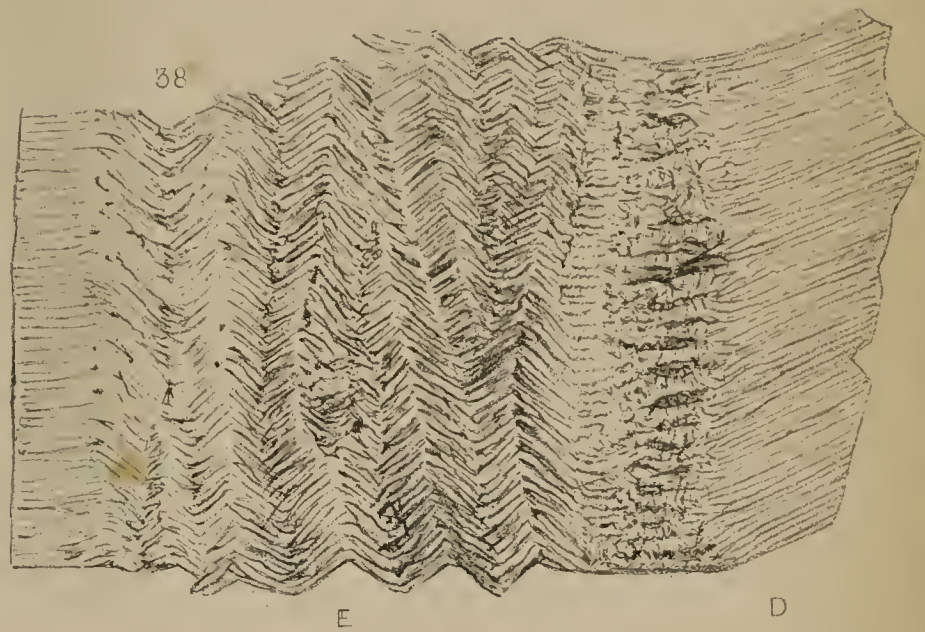 38
E
D